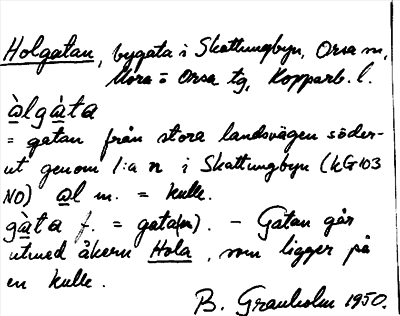 Holgatan, bygata i Skattungbyn, Orsa sn,
Mora = Orsa tg, Kopparb. l.
àlgàta
= gatan från stora landsvägen söder-
ut genom l:a n i Skattungbyn (kG 103
NO) al m. = kulle.
gàta f. = gata(n). – Gatan går
utmed åkern Hola, som ligger på
en kulle.
B. Granholm 1950.